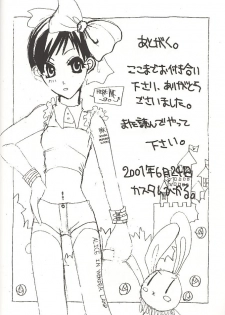 あとがく。
ここまでお付き合い
下さり、ありがとう
ございました。
また読んでやって
下さい。
2007年6月24日
ALICE IN WONDER LAND